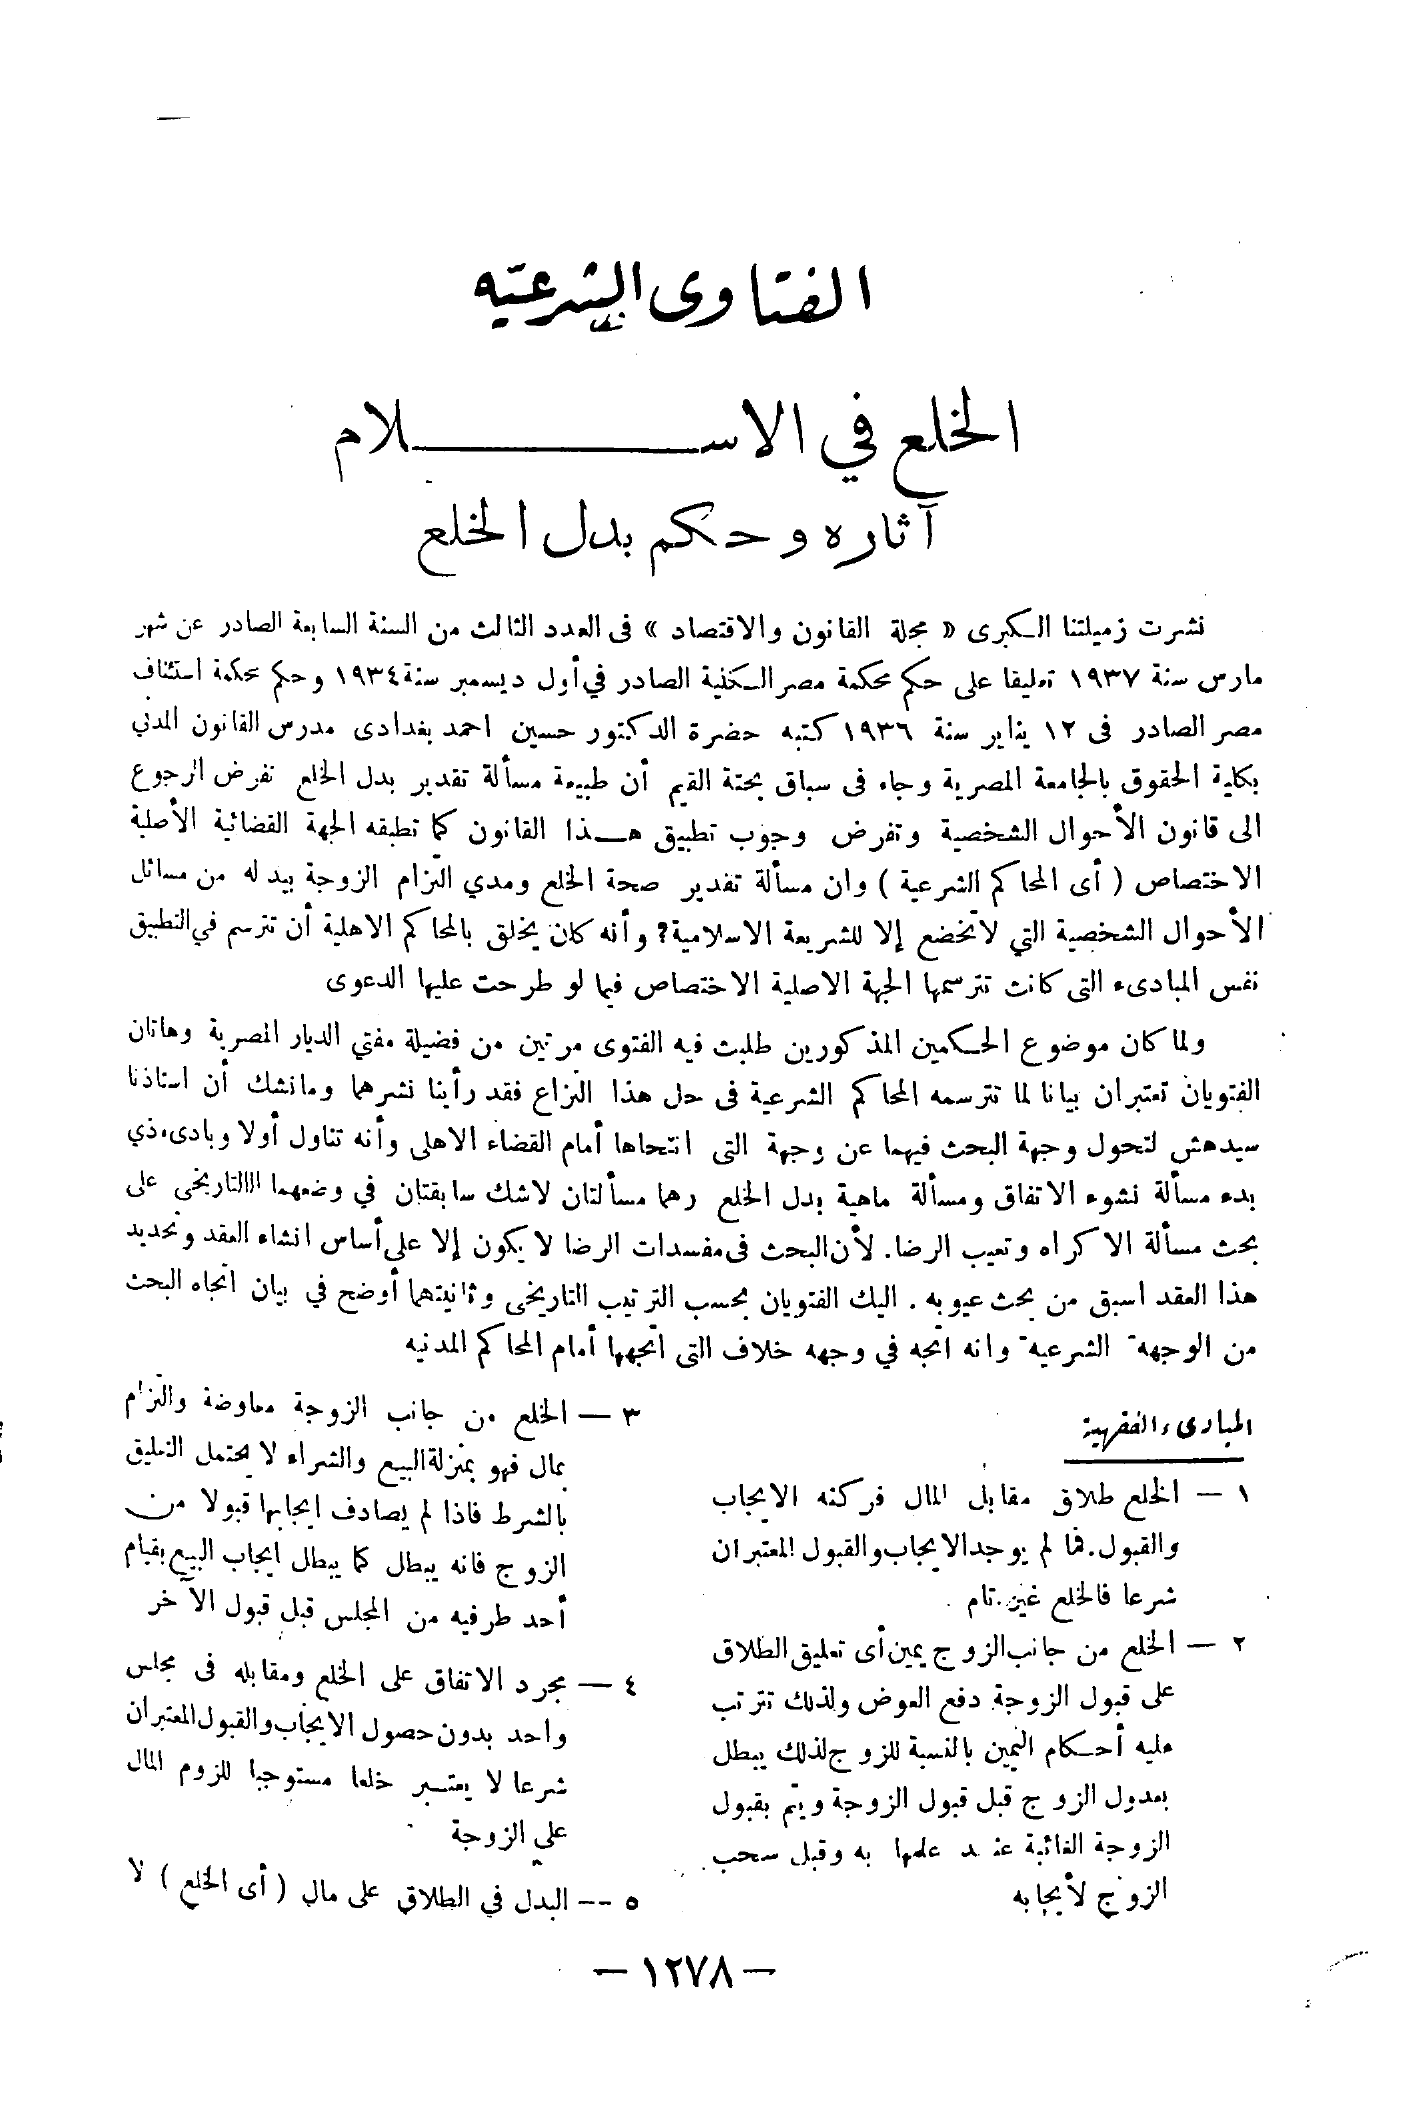 الفتاوى الشرعية
الخلع في الاسلام
آثاره وحكم بدل الخلع
نشرت زميلتنا الكبرى « مجلة القانون والاقتصاد » فى العدد الثالث من السنة السابعة الصادر عن شهر
مارس سنة ١٩٣٧ تعليقا على حكم محكمة مصر الكلية الصادر في أول ديسمبر سنة ١٩٣٤ وحكم محكمة استئناف
مصر الصادر فى ١٢ يناير سنة ١٩٣٦ كتبه حضرة الدكتور حسين احمد بغدادى مدرس القانون المدني
بكلية الحقوق بالجامعة المصرية وجاء فى سباق بحثة القيم أن طبيعة مسألة تقدير بدل الخلع تفرض الرجوع
الى قانون الأحوال الشخصية وتفرض وجوب تطبيق هذا القانون كما تطبقه الجهة القضائية الأصلية
الاختصاص ( أى المحاكم الشرعية ) وان مسألة تقدير صحة الخلع ومدي التزام الزوجة ببدله من مسائل
الأحوال الشخصية التي لاتخضع إلا للشريعة الاسلامية؟ وأنه كان يخلق بالمحاكم الاهلية أن تترسم في التطبيق
نفس المبادىء التى كانت تترسمها الجهة الاصلية الاختصاص فيما لو طرحت عليها الدعوى
ولما كان موضوع الحكمين المذكورين طلبت فيه الفتوى مرتين من فضيلة مفتي الديار المصرية وهاتان
الفتويان تعتبران بيانا لما تترسمه المحاكم الشرعية فى حل هذا النزاع فقد رأينا نشرهما ومانشك أن استاذنا
سيدهش لتحول وجهة البحث فيهما عن وجهة التى انتحاها أمام القضاء الاهلى وأنه تناول أولا وبادىء ذي
بدء مسألة نشوء الاتفاق ومسألة ماهية بدل الخلع وهما مسألتان لاشك سابقتان في وضعهما التاريخى على
بحث مسألة الاكراه وتعيب الرضا. لأن البحث فى مفسدات الرضا لا يكون إلا على أساس انشاء العقد وتحديد
هذا العقد اسبق من بحث عيوبه . اليك الفتويان بحسب الترتيب التاريخى وثانيتهما أوضح في بيان اتجاه البحث
من الوجهة الشرعية وانه اتجه في وجهه خلاف التى اتجهها أمام المحاكم المدنيه
المبادىء الفقهية
١ — الخلع طلاق مقابل المال فركنه الايجاب
والقبول. فما لم يوجد الايجاب والقبول المعتبران
شرعا فالخلع غير تام .
٢ — الخلع من جانب الزوج يمين أى تعليق الطلاق
على قبول الزوجة دفع العوض ولذلك تترتب
عليه أحكام اليمين بالنسبة للزوج لذلك يبطل
بعدول الزوج قبل قبول الزوجة ويتم بقبول
الزوجة الغائبة عند علمها به وقبل سحب
الزوج لأيجابه
٣ — الخلع من جانب الزوجة معاوضة والتزام
بمال فهو بمنزلة البيع والشراء لا يحتمل التعليق
بالشرط فاذا لم يصادف ايجابها قبولا من
الزوج فانه يبطل كما يبطل ايجاب البيع بقيام
أحد طرفيه من المجلس قبل قبول الآخر
٤ — مجرد الاتفاق على الخلع ومقابله فى مجلس
واحد بدون حصول الايجاب والقبول المعتبران
شرعا لا يعتبر خلعا مستوجبا للزوم المال
على الزوجة
٥ -- البدل في الطلاق على مال ( أى الخلع ) لا
— ١٢٧٨ —